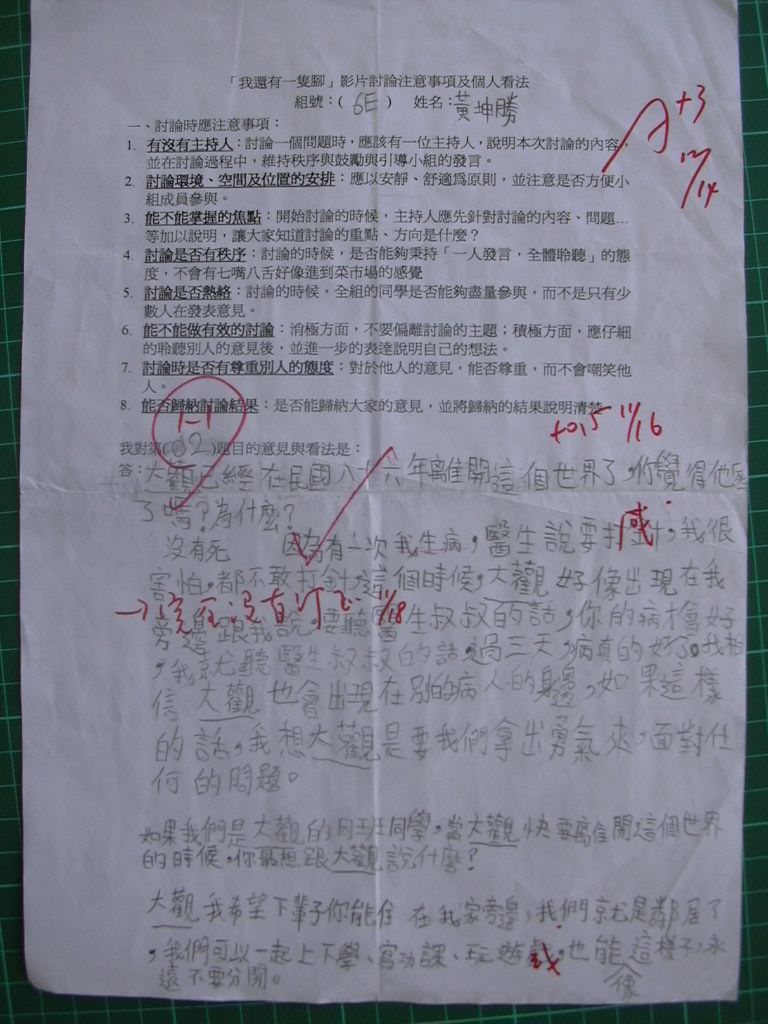 「我還有一隻腳」影片討論注意事項及個人看法
組號：( 6E )　姓名：黃坤勝
A +3
12/14
一、討論時應注意事項：
1. 有沒有主持人：討論一個問題時，應該有一位主持人，說明本次討論的內容，
並在討論過程中，維持秩序與鼓勵與引導小組的發言。
2. 討論環境、空間及位置的安排：應以安靜、舒適為原則，並注意是否方便小
組成員參與。
3. 能不能掌握的焦點：開始討論的時候，主持人應先針對討論的內容、問題…
等加以說明，讓大家知道討論的重點、方向是什麼？
4. 討論是否有秩序：討論的時候，是否能夠秉持「一人發言，全體聆聽」的態
度，不會有七嘴八舌好像進到菜市場的感覺
5. 討論是否熱絡：討論的時候，全組的同學是否能夠盡量參與，而不是只有少
數人在發表意見。
6. 能不能做有效的討論：消極方面，不要偏離討論的主題；積極方面，應仔細
的聆聽別人的意見後，並進一步的表達說明自己的想法。
7. 討論時是否有尊重別人的態度：對於他人的意見，能否尊重，而不會嘲笑他
人。
8. 能否歸納討論結果：是否能歸納大家的意見，並將歸納的結果說明清楚
1-1
+0.5 11/16
我對第(02)題目的意見與看法是：
答：大觀已經在民國八十六年離開這個世界了，你覺得他死
了嗎？為什麼？
沒有死　因為有一次我生病，醫生說要打針，我很
感
害怕，都不敢打針，這個時候，大觀好像出現在我
旁邊跟我說，要聽醫生叔叔的話，你的病才會好
11/18
，我就聽醫生叔叔的話，過三天，病真的好了。我相
信大觀也會出現在別的病人的身邊，如果這樣
的話，我想大觀是要我們拿出勇氣來，面對任
何的問題。
如果我們是大觀的同班同學，當大觀快要離開這個世界
的時候，你最想跟大觀說什麼？
大觀我希望下輩子你能住在我家旁邊，我們就是鄰居了
，我們可以一起上下學、寫功課、玩遊戲，也能這樣子，永
像
遠不要分開。